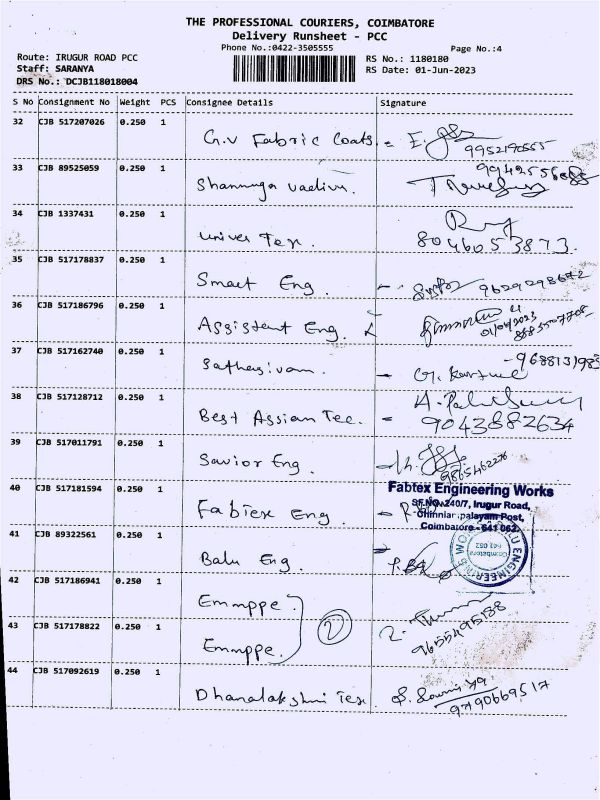 THE PROFESSIONAL COURIERS, COIMBATORE
Delivery Runsheet - PCC
Phone No.:0422-3505555
Page No.:4
Route: IRUGUR ROAD PCC
RS No.: 1180180
Staff: SARANYA
RS Date: 01-Jun-2023
DRS No.: DCJB118018004
S No Consignment No Weight PCS Consignee Details Signature
32 CJB 517207026 0.250 1
G.V Fabric Coats. -
9952190555
33 CJB 89525059 0.250 1
Shanmuga vadivu.
34 CJB 1337431 0.250 1
Univer Tex.
8046053873.
35 CJB 517178837 0.250 1
Smart Eng. -
9629298672
36 CJB 517186796 0.250 1
Assistent Eng.
01/06/2023
37 CJB 517162740 0.250 1
Sathasivam. -
38 CJB 517128712 0.250 1
Best Assian Tec. - 9043882634
39 CJB 517011791 0.250 1
Savior Eng.
9865462276
40 CJB 517181594 0.250 1
Fabtex Engineering Works
SF.NO. 240/7, Irugur Road,
Chinniampalayam Post,
Coimbatore - 641 062.
Fabtex Eng -
41 CJB 89322561 0.250 1
Balu Eng.
BALU ENGINEERING WORKS
Coimbatore
641 062
42 CJB 517186941 0.250 1
Emmppe.
2
43 CJB 517178822 0.250 1
Emmppe.
9655495138
44 CJB 517092619 0.250 1
Dhanalakshmi Tex
9790669517